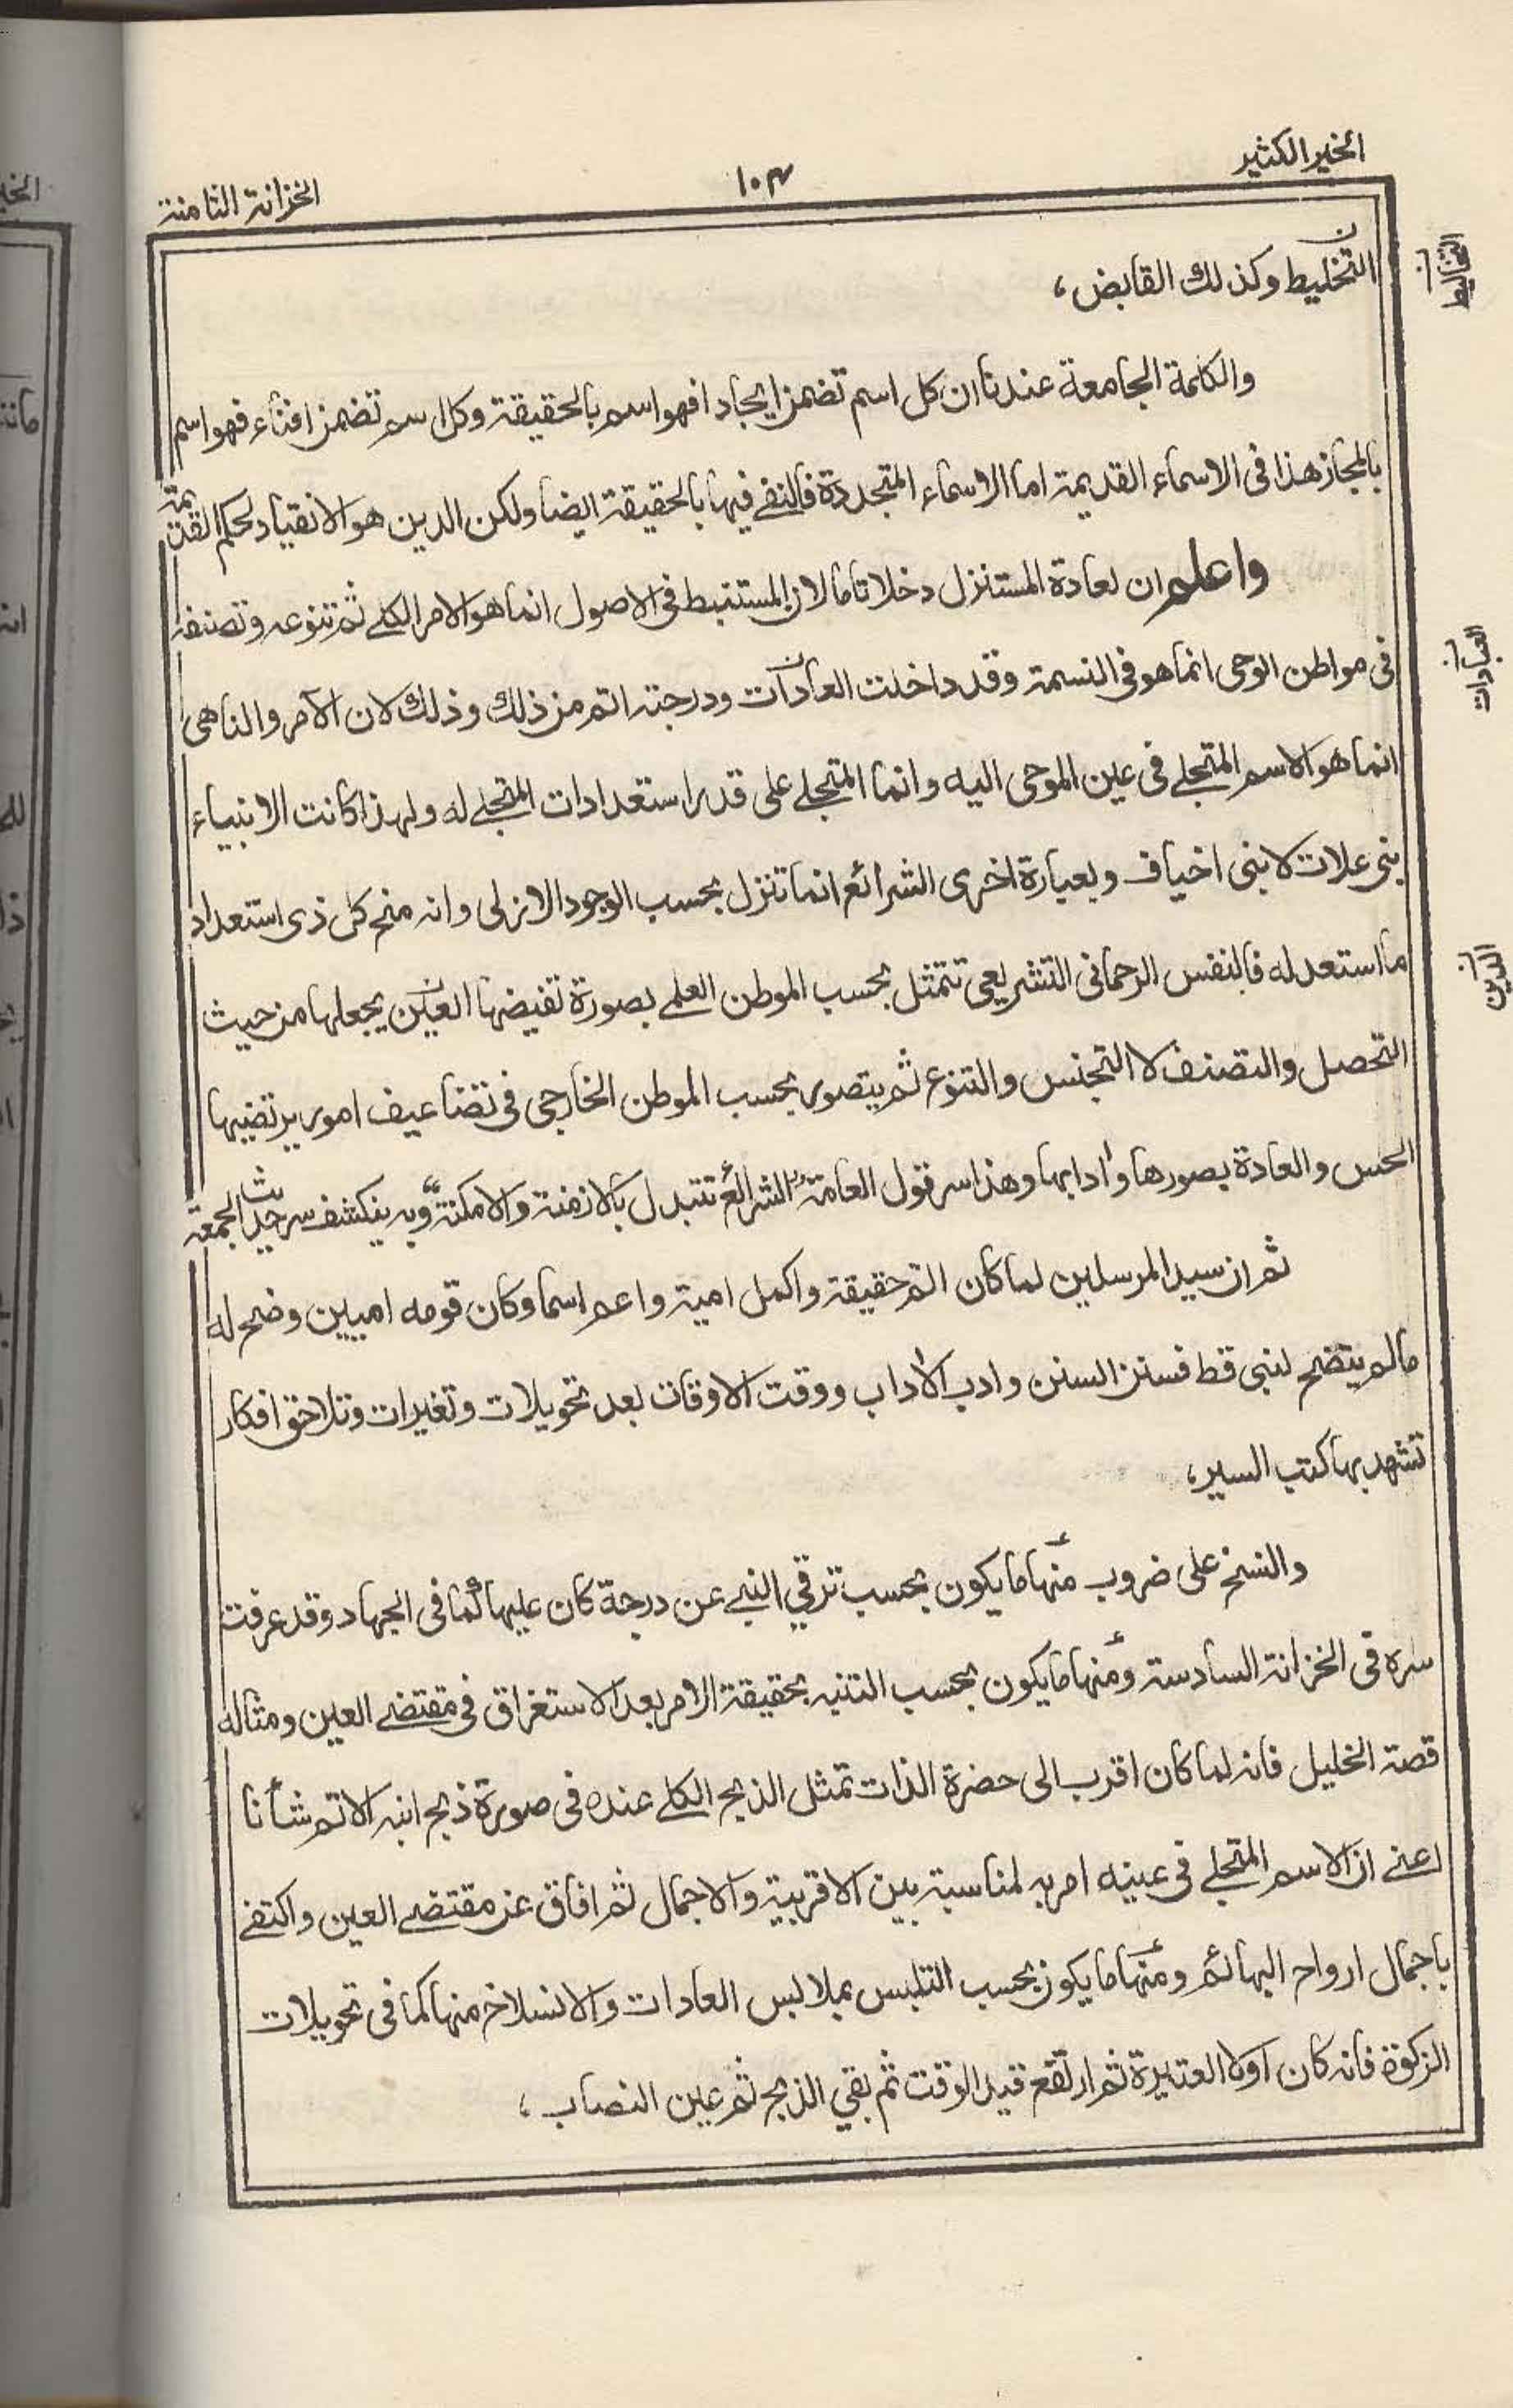 الخير الكثير
١٠٣
الخزانة الثامنة
التخليط وكذلك القابض،
والكلمة الجامعة عندنا ان كل اسم تضمن ايجادا فهو اسم بالحقيقة وكل اسم تضمن افناء فهو اسم
بالمجاز هذا فى الاسماء القديمة اما الاسماء المتجددة فالنفے فيها بالحقيقة ايضا ولكن الدين هو الانقياد لحكم القديمة
واعلم ان لعادة المستنزل دخلا تاما لان المستنبط فى الاصول انما هو الامر الكلے ثم تنوعه وتصنفه
فى مواطن الوحى انما هو فى النسمة وقد داخلت العادات ودرجته اتم من ذلك وذلك لان الآمر والناهى
انما هو الاسم المتجلے فى عين الموحى اليه وانما المتجلے على قدر استعدادات المتجلے له ولهذا كانت الانبياء
بنى علات لا بنى اخياف وبعبارة اخرى الشرائع انما تنزل بحسب الوجود الازلى وانه منح كل ذى استعداد
ما استعد له فالنفس الرحمانى التشريعى تتمثل بحسب الموطن العلمے بصورة تفيضها العين يجعلها من حيث
التحصل والتصنف لا التجنس والتنوع ثم يتصور بحسب الموطن الخارجى فى تضاعيف امور يرتضيها
الحس والعادة بصورها وادابها وهذا سر قول العامة "الشرائع تتبدل بالازمنة والامكنة" وبه ينكشف سر حديث الجمعة
ثم ان سيد المرسلين لما كان اتم حقيقة واكمل امية واعم اسما وكان قومه اميين وضح له
مالم يتضح لنبى قط فسنن السنن وادب الاداب ووقت الاوقات بعد تحويلات وتغيرات وتلاحق افكار
تشهد بها كتب السير،
والنسخ على ضروب منها ما يكون بحسب ترقي النبے عن درجة كان عليها كما فى الجهاد وقد عرفت
سره فى الخزانة السادسة ومنها ما يكون بحسب التنبه بحقيقة الامر بعد الاستغراق فى مقتضے العين ومثاله
قصة الخليل فانه لما كان اقرب الى حضرة الذات تمثل الذبح الكلے عنده فى صورة ذبح ابنه الاتم شأنا
اعنے ان الاسم المتجلے فى عينه امر به لمناسبة بين الاقربية والاجمال ثم افاق عن مقتضے العين واكتفے
باجمال ارواح البهائم ومنها ما يكون بحسب التلبس بملابس العادات والانسلاخ منها كما فى تحويلات
الزكوة فانه كان اولا العتيرة ثم ارتفع قيد الوقت ثم بقي الذبح ثم عين النصاب،
التخاليط
العبادات
الدين